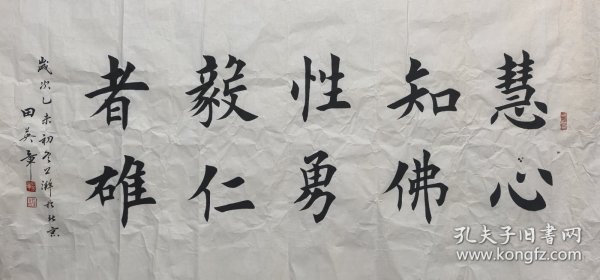 慧心
知佛
性勇
毅仁
者雄
歲次乙未初冬
於北京
田英章
孔夫子旧书网
www.kongfz.com